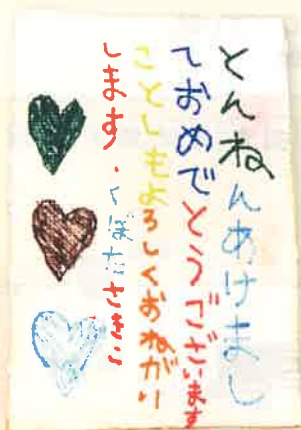 とんねんあけまし
ておめでとうございます
ことしもよろしくおねがい
します・くぼたさきこ